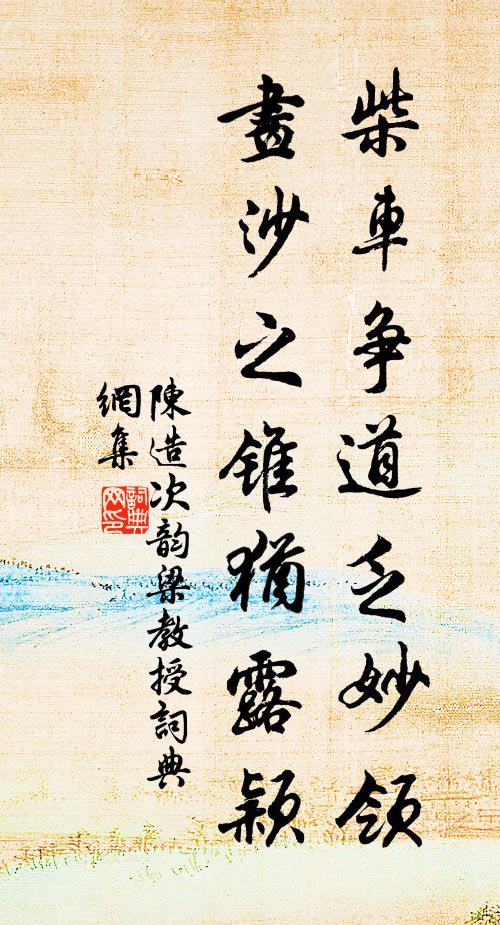 柴車争道乏妙領
畫沙之錐猶露穎
陳造次韵梁教授詞典
網集
詞典
网印